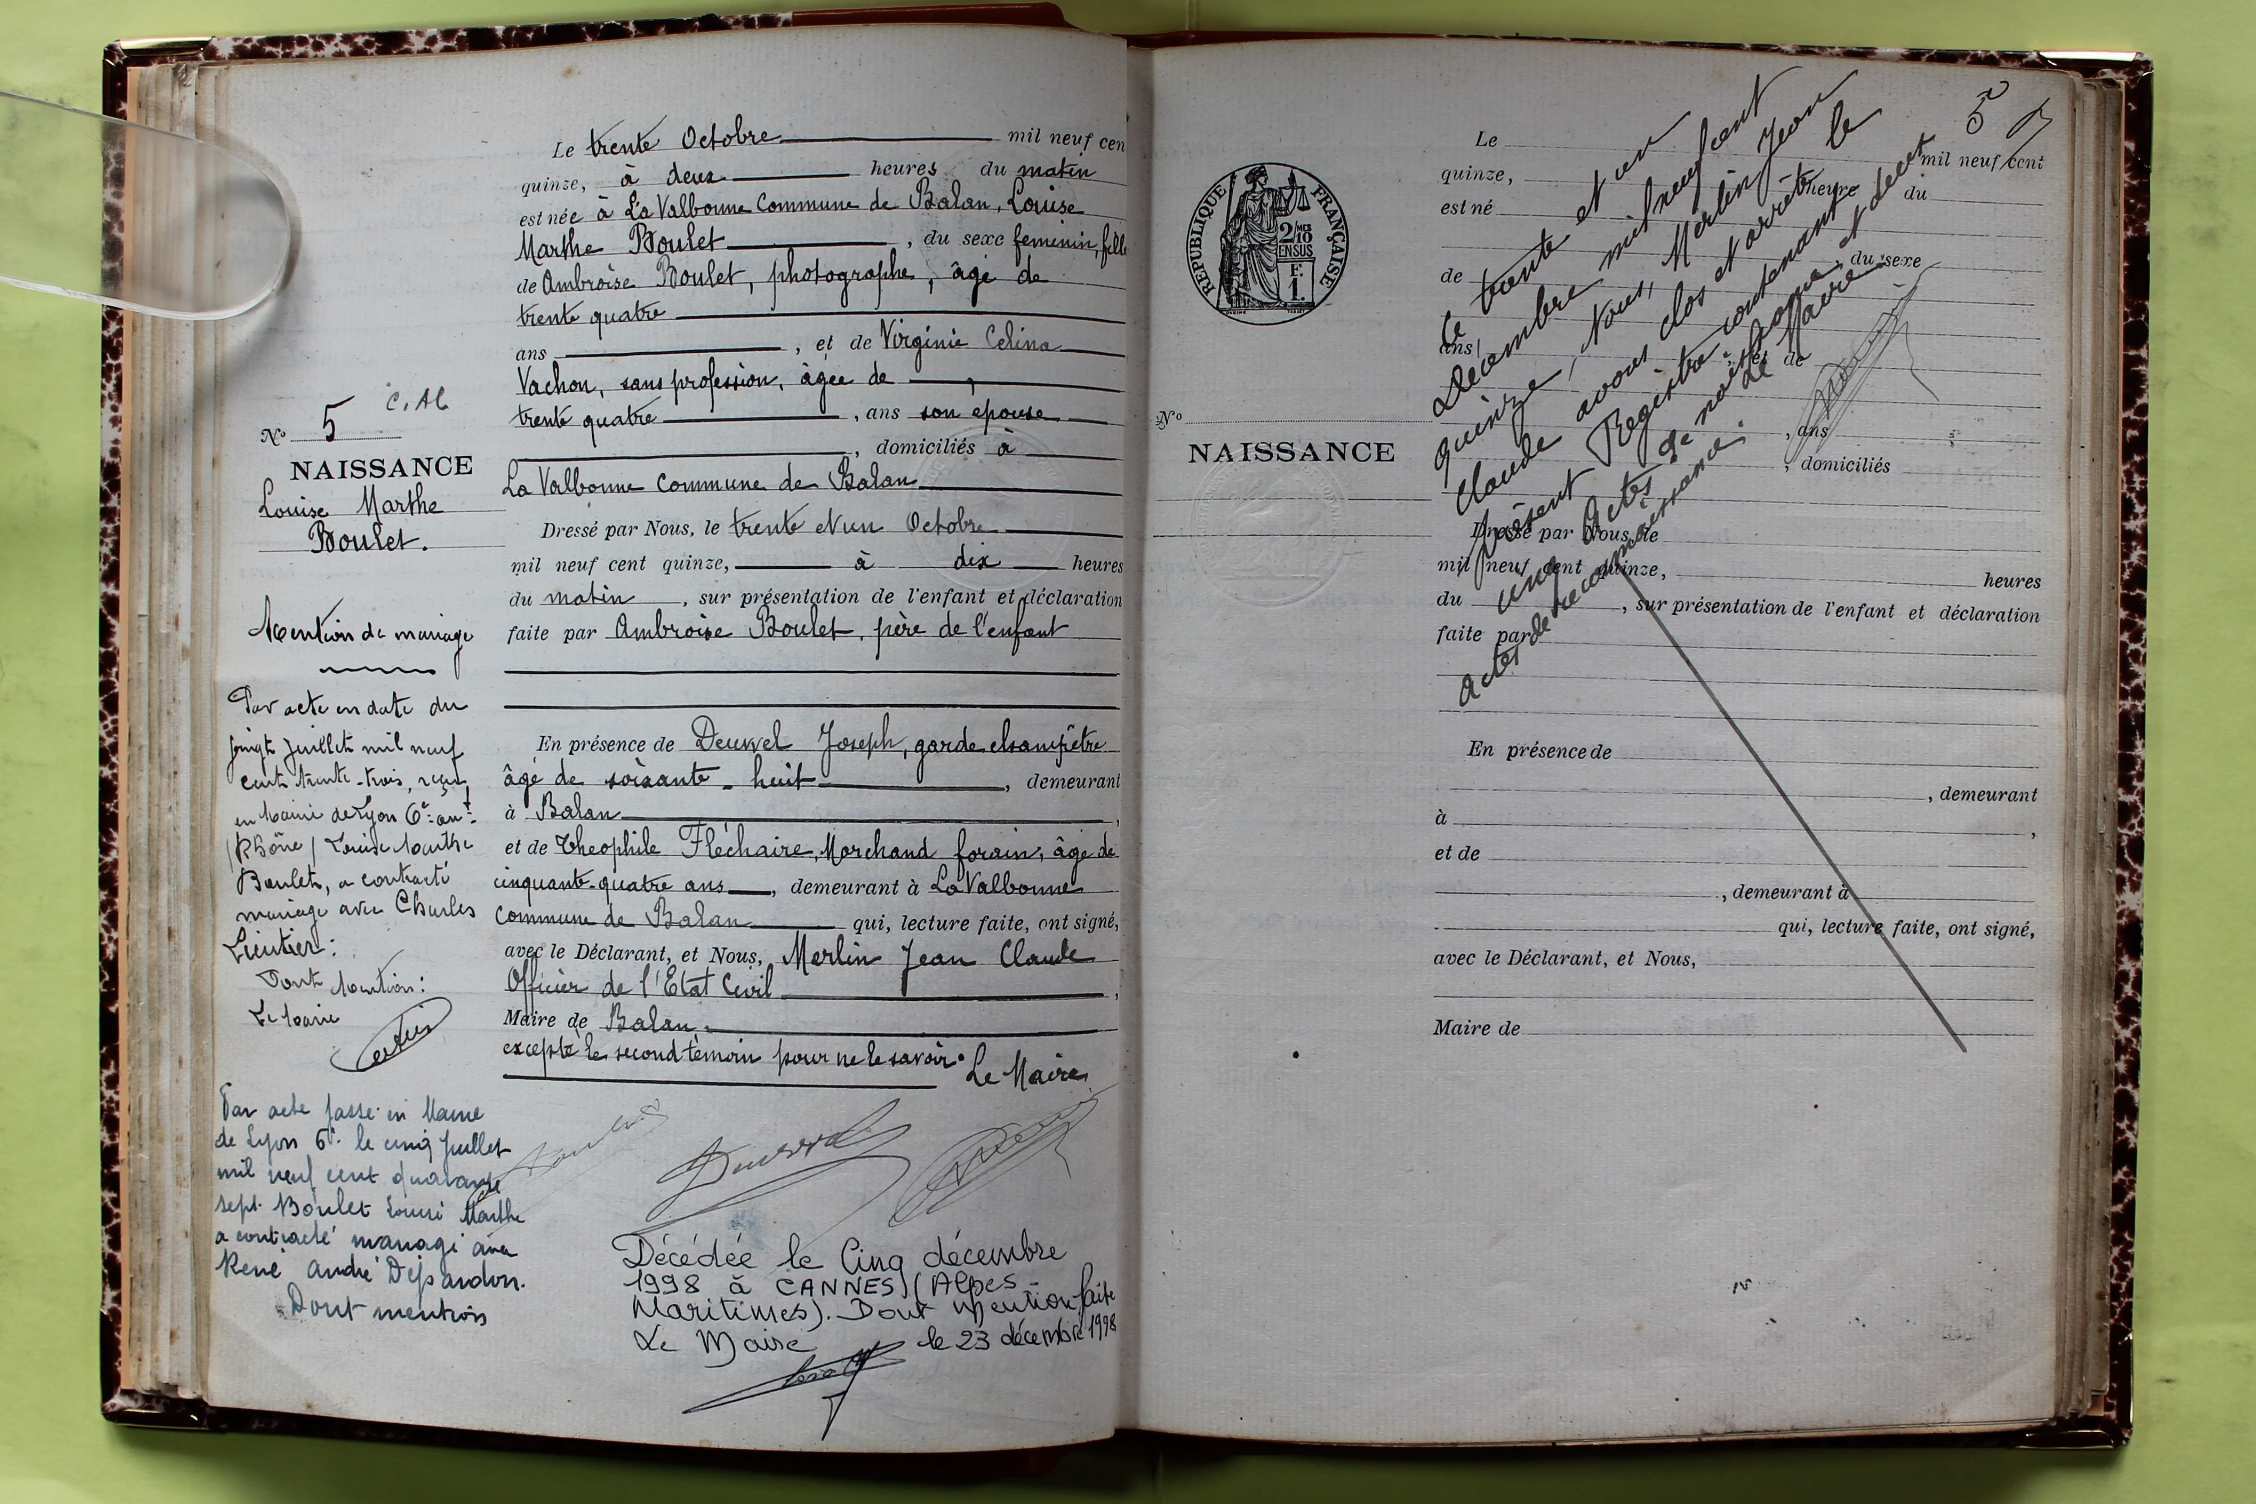 C. Al
N° 5
NAISSANCE
Louise Marthe
Boulet.
Mention de mariage
Par acte en date du
vingt juillet mil neuf
cent trente-trois, reçu
en Mairie de Lyon 6e arrt
(Rhône) Louise Marthe
Boulet, a contracté
mariage avec Charles
Lieutier:
Dont Mention:
Le Maire
Par acte passé en Mairie
de Lyon 6e le cinq juillet
mil neuf cent quarante
sept. Boulet Louise Marthe
a contracté mariage avec
René André
Dont mention
Le trente Octobre mil neuf cen
quinze, à deux heures du matin
est née à La Valbonne Commune de Balan, Louise
Marthe Boulet, du sexe feminin, fille
de Ambroise Boulet, photographe, âgé de
trente quatre
ans, et de Virginie Celina
Vachon, sans profession, âgée de,
trente quatre, ans son epouse
, domiciliés à
La Valbonne Commune de Balan
Dressé par Nous, le trente et un Octobre
mil neuf cent quinze, à dix heures
du matin, sur présentation de l'enfant et déclaration
faite par Ambroise Boulet, père de l'enfant
En présence de Deuvel Joseph, garde champêtre
âgé de soixante-huit, demeurant
à Balan,
et de Theophile Fléchaire, Marchand forain, âgé de
cinquante-quatre ans, demeurant à La Valbonne
Commune de Balan qui, lecture faite, ont signé,
avec le Déclarant, et Nous, Merlin Jean Claude
Officier de l'Etat Civil,
Maire de Balan.
excepté le second témoin pour ne le savoir. Le Maire
Décédée le Cinq décembre
1998 à CANNES (Alpes
Maritimes). Dont Mention faite
Le Maire le 23 décembre 1998
5
RÉPUBLIQUE FRANÇAISE
2/10 MES
EN SUS
E.
1.
N°
NAISSANCE
Le mil neuf cent
quinze, heure du
est né
de, du sexe
ans, et de
, ans,
, domiciliés
Dressé par Nous, le
mil neuf cent quinze, heures
du, sur présentation de l'enfant et déclaration
faite par
En présence de
, demeurant
à,
et de
, demeurant à
qui, lecture faite, ont signé,
avec le Déclarant, et Nous,
Maire de
Le trente et un
Décembre mil neuf cent
quinze, Nous, Merlin Jean
Claude avons clos et arrêté le
présent Registre contenant
cinq Actes de naissance et deux
Actes de reconnaissance.
Le Maire